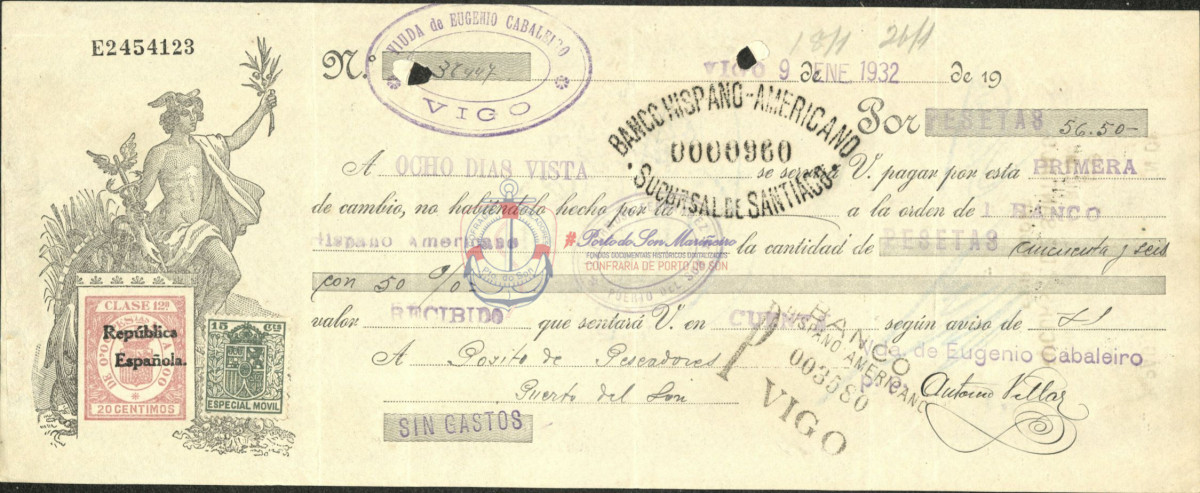 E2454123
VIUDA de EUGENIO CABALEIRO
VIGO
18/1 26/1
N.º
VIGO 9 de ENE 1932 de 19
BANCO HISPANO-AMERICANO
0000960
SUCURSAL DE SANTIAGO
Por PESETAS 56.50-
A OCHO DIAS VISTA se servirá V. pagar por esta PRIMERA
de cambio, no habiéndolo hecho por la a la orden de l BANCO
Hispano Americano la cantidad de PESETAS cincuenta y seis
#Porto do Son Mariñeiro
FONDOS DOCUMENTAIS HISTÓRICOS DIGITALIZADOS
CONFRARIA DE PORTO DO SON
Porto do Son
PUERTO DEL SON
con 50 %
valor RECIBIDO que sentará V. en CUENTA según aviso de
A Posito de Pescadores
Puerto del Son
Vda. de Eugenio Cabaleiro
p.
Antonio Villar
BANCO
HISPANO AMERICANO
003580
VIGO
SIN GASTOS
CLASE 12ª
República
Española.
20 CENTIMOS
15 Cts
ESPECIAL MÓVIL